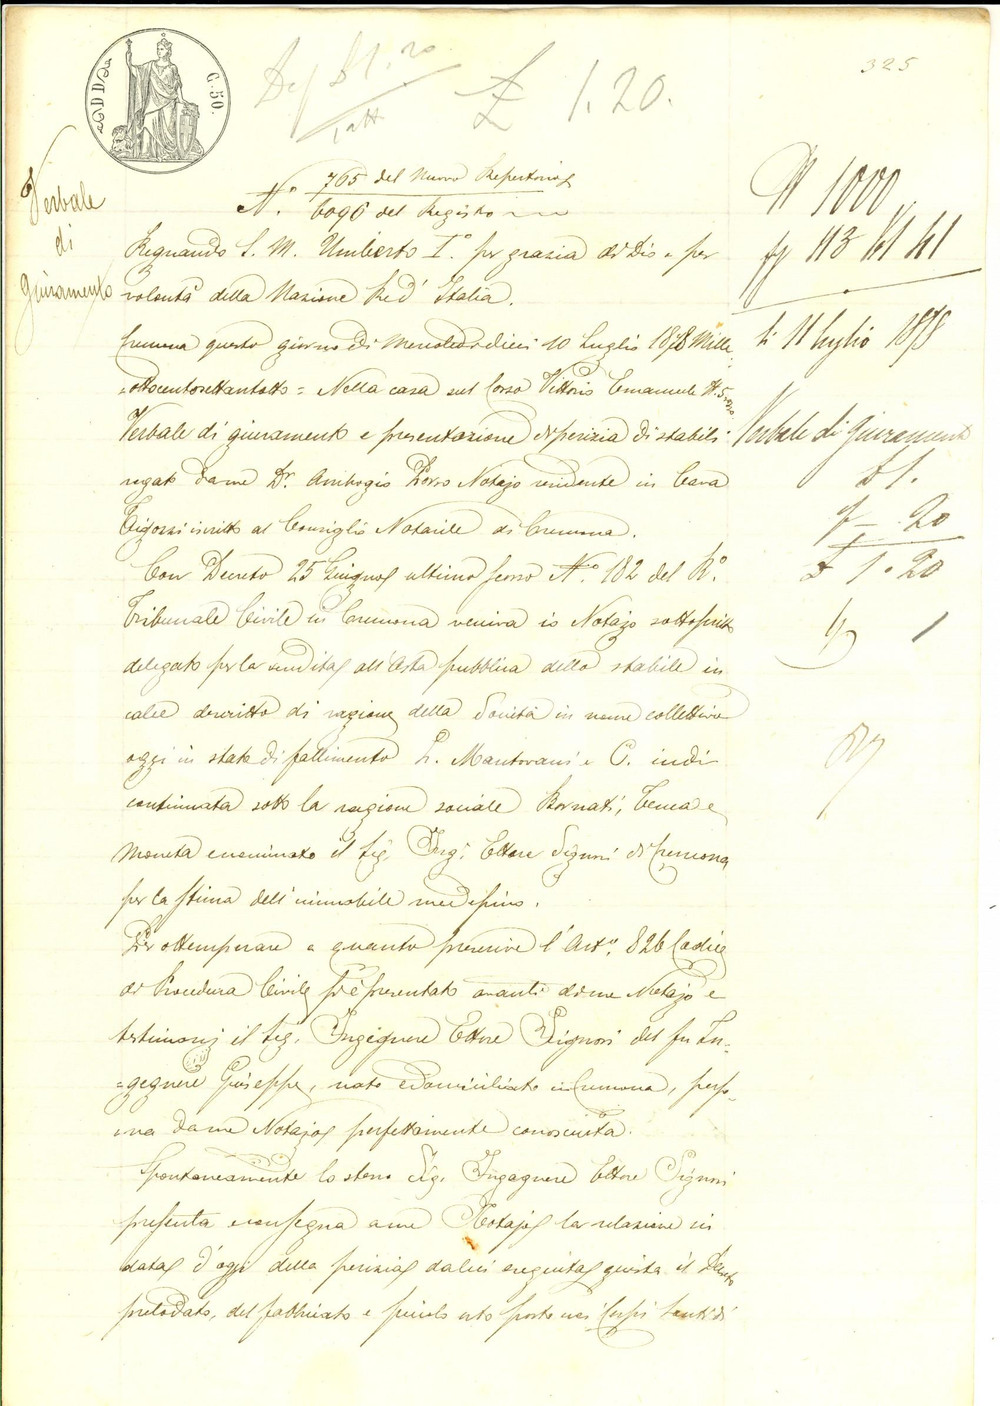 325
C. 50.
£ 1.20.
Verbale
di
giuramento
N.° 765 del nuovo Repertorio
6096 del Registro
Regnando S. M. Umberto I°. per grazia di Dio e per
volontà della Nazione Re d'Italia.
Cremona questo giorno di Mercoledì dieci 10 Luglio 1878 Mille
=ottocentosettantotto= Nella casa sul Corso Vittorio Emanuele N. 5
Verbale di giuramento e presentazione di perizia di stabili
rogato da me Dr. Ambrogio Porro Notajo residente in Cava
Tigozzi iscritto al Consiglio Notarile di Cremona.
Con Decreto 25 Giugno ultimo scorso N.° 182 del R.°
Tribunale Civile in Cremona veniva io Notajo sottoscritto
delegato per la vendita all'Asta pubblica dello stabile in
calce descritto di ragione della Società in nome collettivo
oggi in stato di fallimento L. Mantovani e C. indi
continuata sotto la ragione sociale Bornati, Tenca e
Moneta e nominato il Sig. Ing. Ettore Signori di Cremona
per la stima dell'immobile medesimo.
Per ottemperare a quanto prescrive l'Art.° 826 Codice
di Procedura Civile si è presentato avanti di me Notajo e
testimonj il Sig. Ingegnere Ettore Signori del fu In=
=gegnere Giuseppe, nato e domiciliato in Cremona, perso=
=na da me Notajo perfettamente conosciuta.
Spontaneamente lo stesso Sig. Ingegnere Ettore Signori
presenta e consegna a me Notajo la relazione in
data d'oggi della perizia da lui eseguita giusta il Decreto
prelodato, del fabbricato e piccolo orto posto nei Corpi Santi di
N 1000
113 61 41
li 11 Luglio 1878
Verbale di Giuramento
£ 1.
20
£ 1.20
1